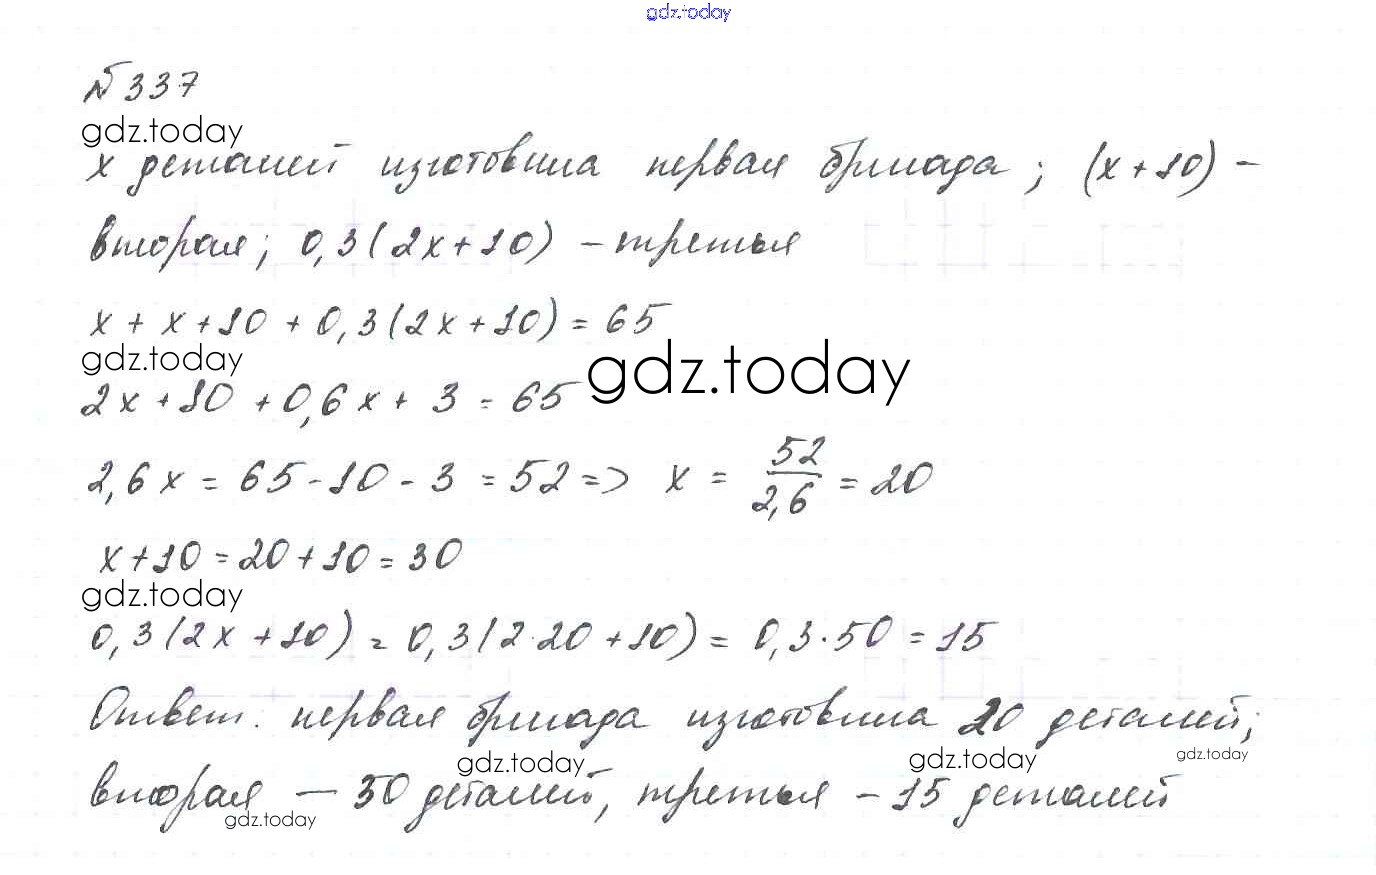 gdz.today
№ 337
gdz.today
x деталей изготовила первая бригада; (x+10) –
вторая; 0,3(2x+10) – третья
x + x + 10 + 0,3(2x+10) = 65
gdz.today
gdz.today
2x + 10 + 0,6x + 3 = 65
2,6x = 65 - 10 - 3 = 52 => x = 52/2,6 = 20
x + 10 = 20 + 10 = 30
gdz.today
0,3(2x + 10) = 0,3(2·20 + 10) = 0,3·50 = 15
Ответ. первая бригада изготовила 20 деталей;
gdz.today gdz.today gdz.today
вторая — 30 деталей, третья – 15 деталей
gdz.today